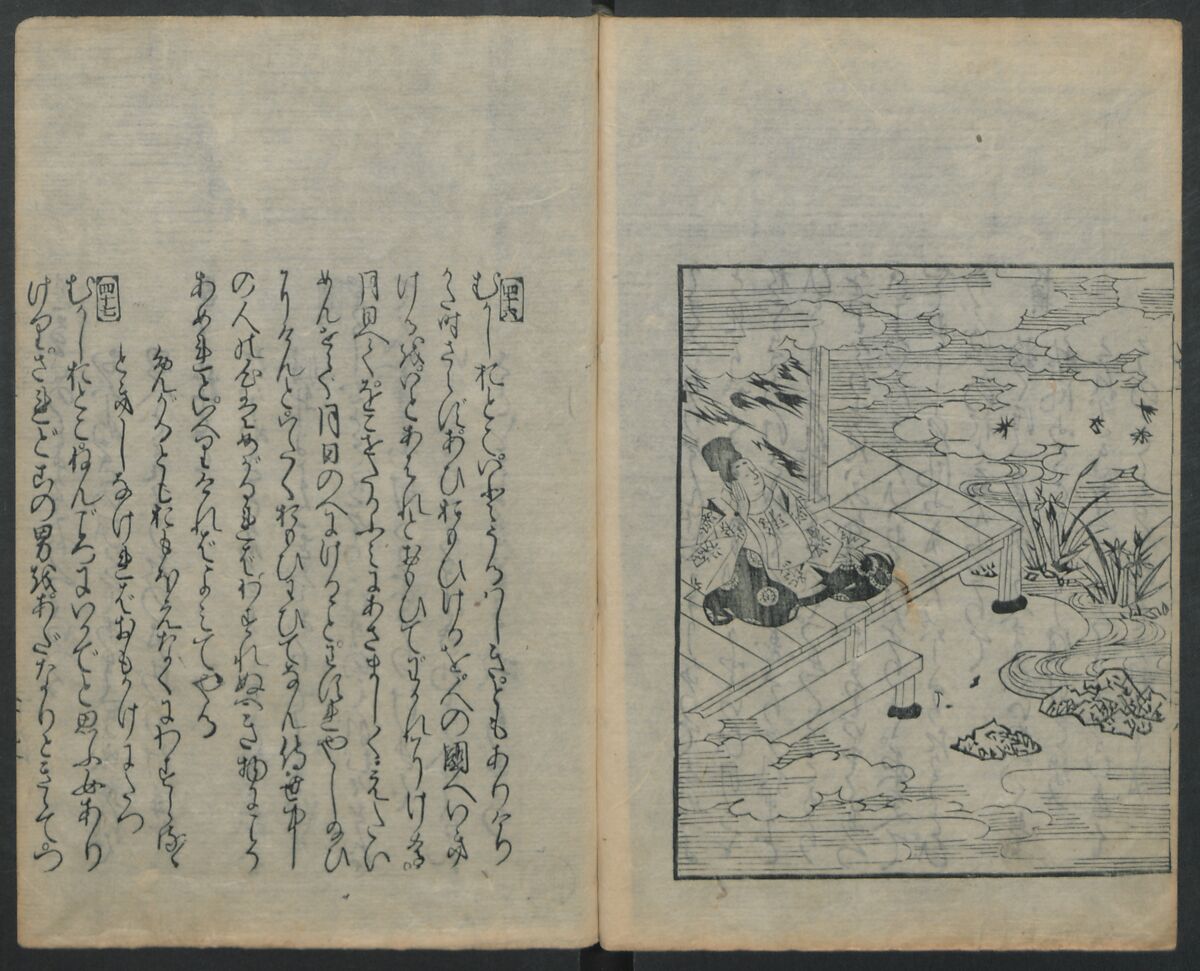 四十六
むかしおとこいとうるはしきともありけり
かた時さらずあひおもひけるを人の國へいき
けるをいとあはれとおもひてわかれにけり
月日へてをこせたるふみにあさましくえたい
めんせで月日のへにけることわすれやし給ひ
にけんといたくおもひわひてなん侍る世中
の人の心はめがるればわすれぬべき物にこそ
あめれといへりければよみてやる
めがるともおもほえなくにわすらるゝ
ときしなければおもかけにたつ
四十七
むかしおとこねんごろにいかでと思ふ女あり
けりされどこの男をあだなりときゝてつ